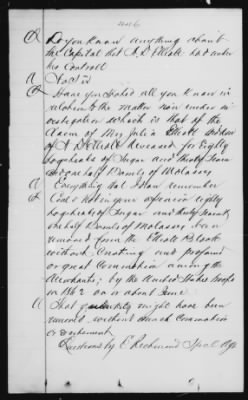 Q Do you know anything about
the Capital that A. D. Elliott had under
his Controll
A No Sir
Q Have you stated all you know in
relation to the matter now under in
vestigation which is that of the
Claim of Mrs Julia Elliott widow
of A D Elliott deceased for Eighty
hogsheads of Sugar and thirty Seven
and one half Barrels of Molasses
A Everything that I can remember
Q Could in your opinion eighty
hogsheads of Sugar and thirty Seven &
one half Barrels of Molasses been
removed from the Elliott Block
without Creating and profound
or great Commotion among the
Merchants, by the United States troops
in 1862 on or about June
A That quantity might have been
removed without much Commotion
or excitement
Questions by E. Richmond Spcl Agt